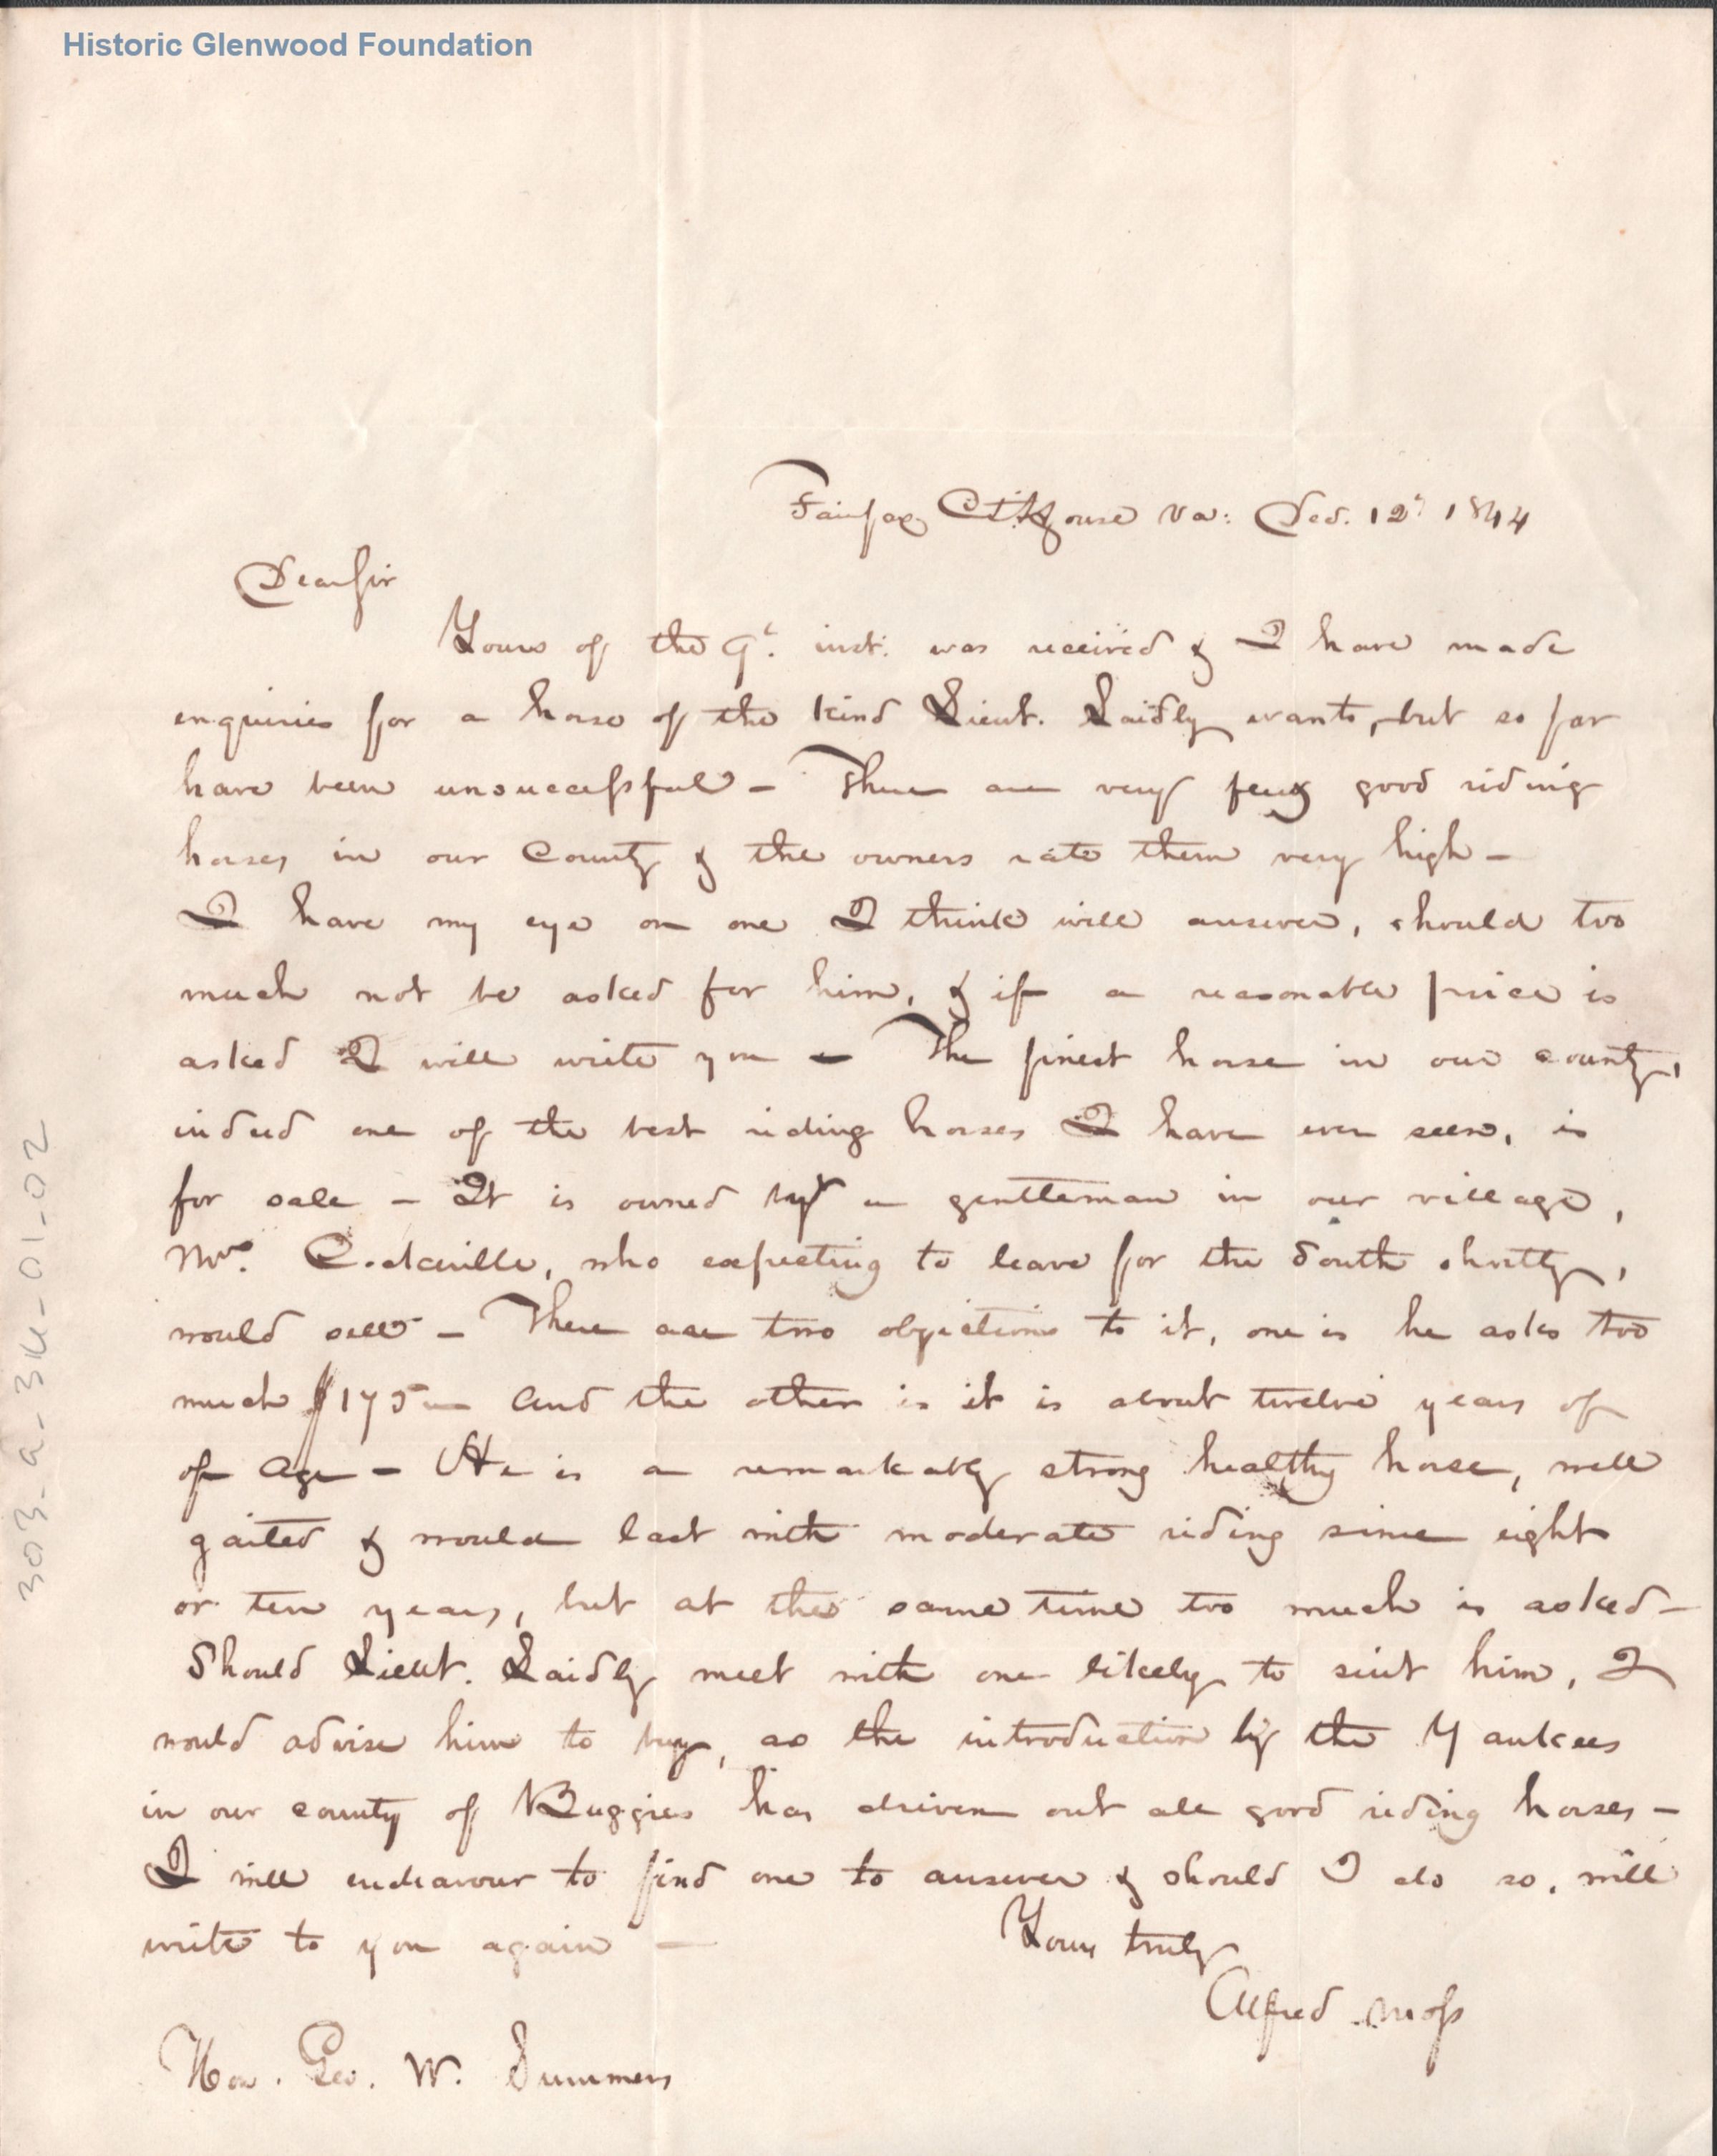 Historic Glenwood Foundation
Fairfax Ct. House Va: Dec. 12t 1844
Dear Sir
Yours of the 9t. inst. was received & I have made
enquiries for a horse of the kind Lieut. Laidly wants, but so far
have been unsuccessful – There are very few good riding
horses in our County & the owners rate them very high –
I have my eye on one I think will answer, should too
much not be asked for him, & if a reasonable price is
asked I will write you – The finest horse in our county,
indeed one of the best riding horses I have ever seen, is
for sale – It is owned by a gentleman in our village,
who expecting to leave for the South shortly,
would sell – There are two objections to it, one is he asks too
much $175 and the other is it is about twelve years of
of age – He is a remarkably strong healthy horse, well
gaited & would last with moderate riding some eight
or ten years, but at the same time too much is asked –
Should Lieut. Laidly meet with one likely to suit him, I
would advise him to buy, as the introduction by the Yankees
in our county of Buggies has driven out all good riding horses –
I will endeavour to find one to answer & should I do so, will
write to you again –
Yours truly
Alfred Moss
Hon. Geo. W. Summers
303-a-314-01-02